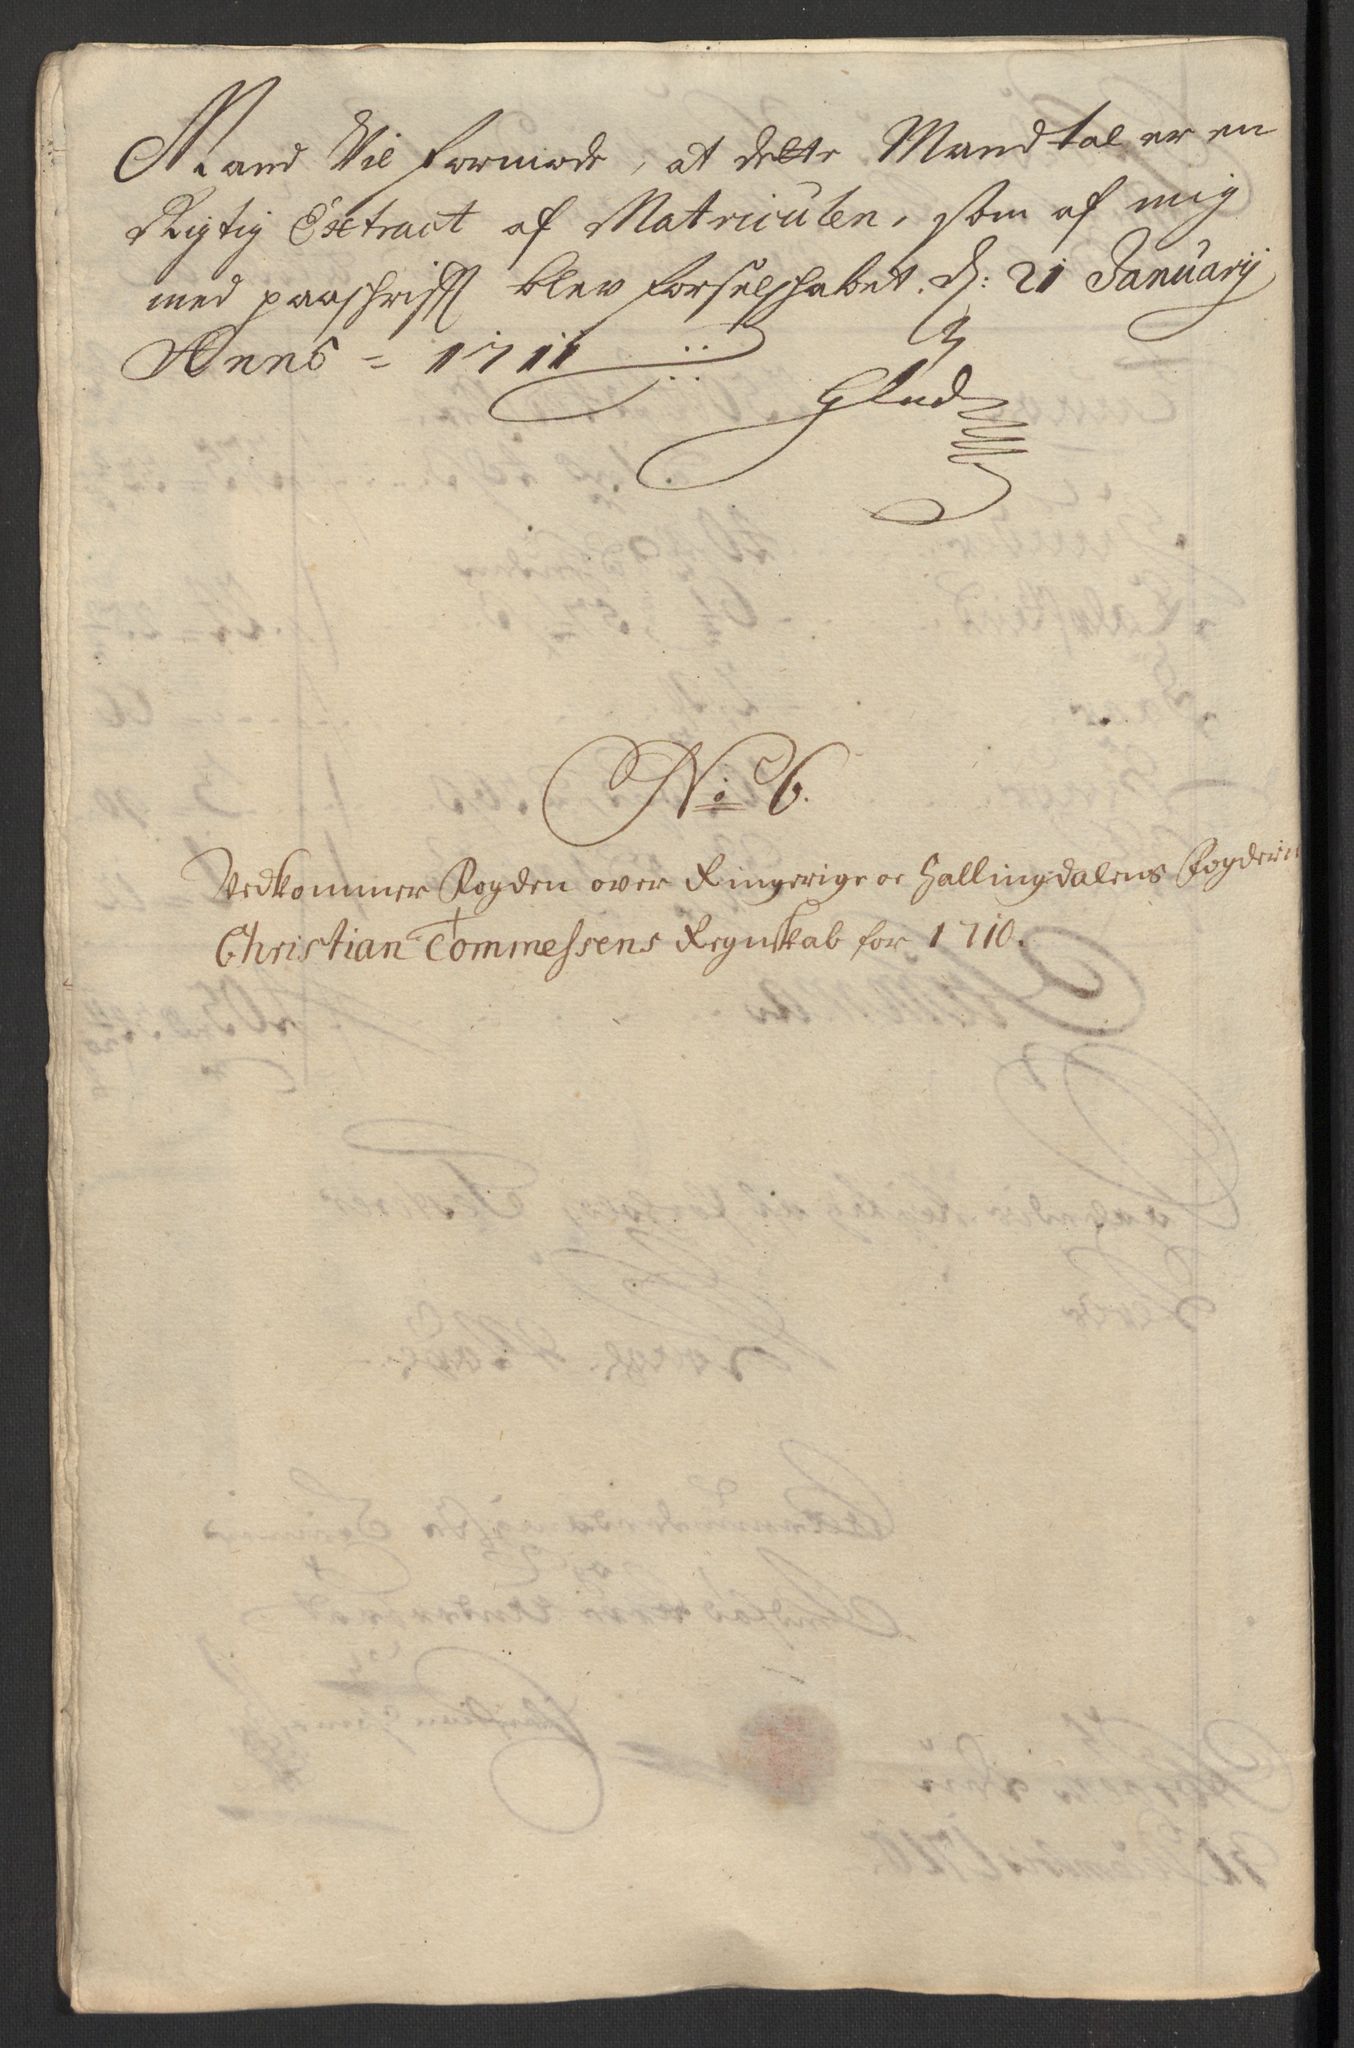 Mand Vil formode, at dette Mandtal er en
Rigtig Extract af Matriculen, som af mig
med paaschrifft blev forselschabet. d: 21 January
Anno = 1711
Glud
No 6.
Vedkommer Fogden over Ringerige oc Hallingdalens Fogderie
Christian Tommessens Regnskab for 1710.